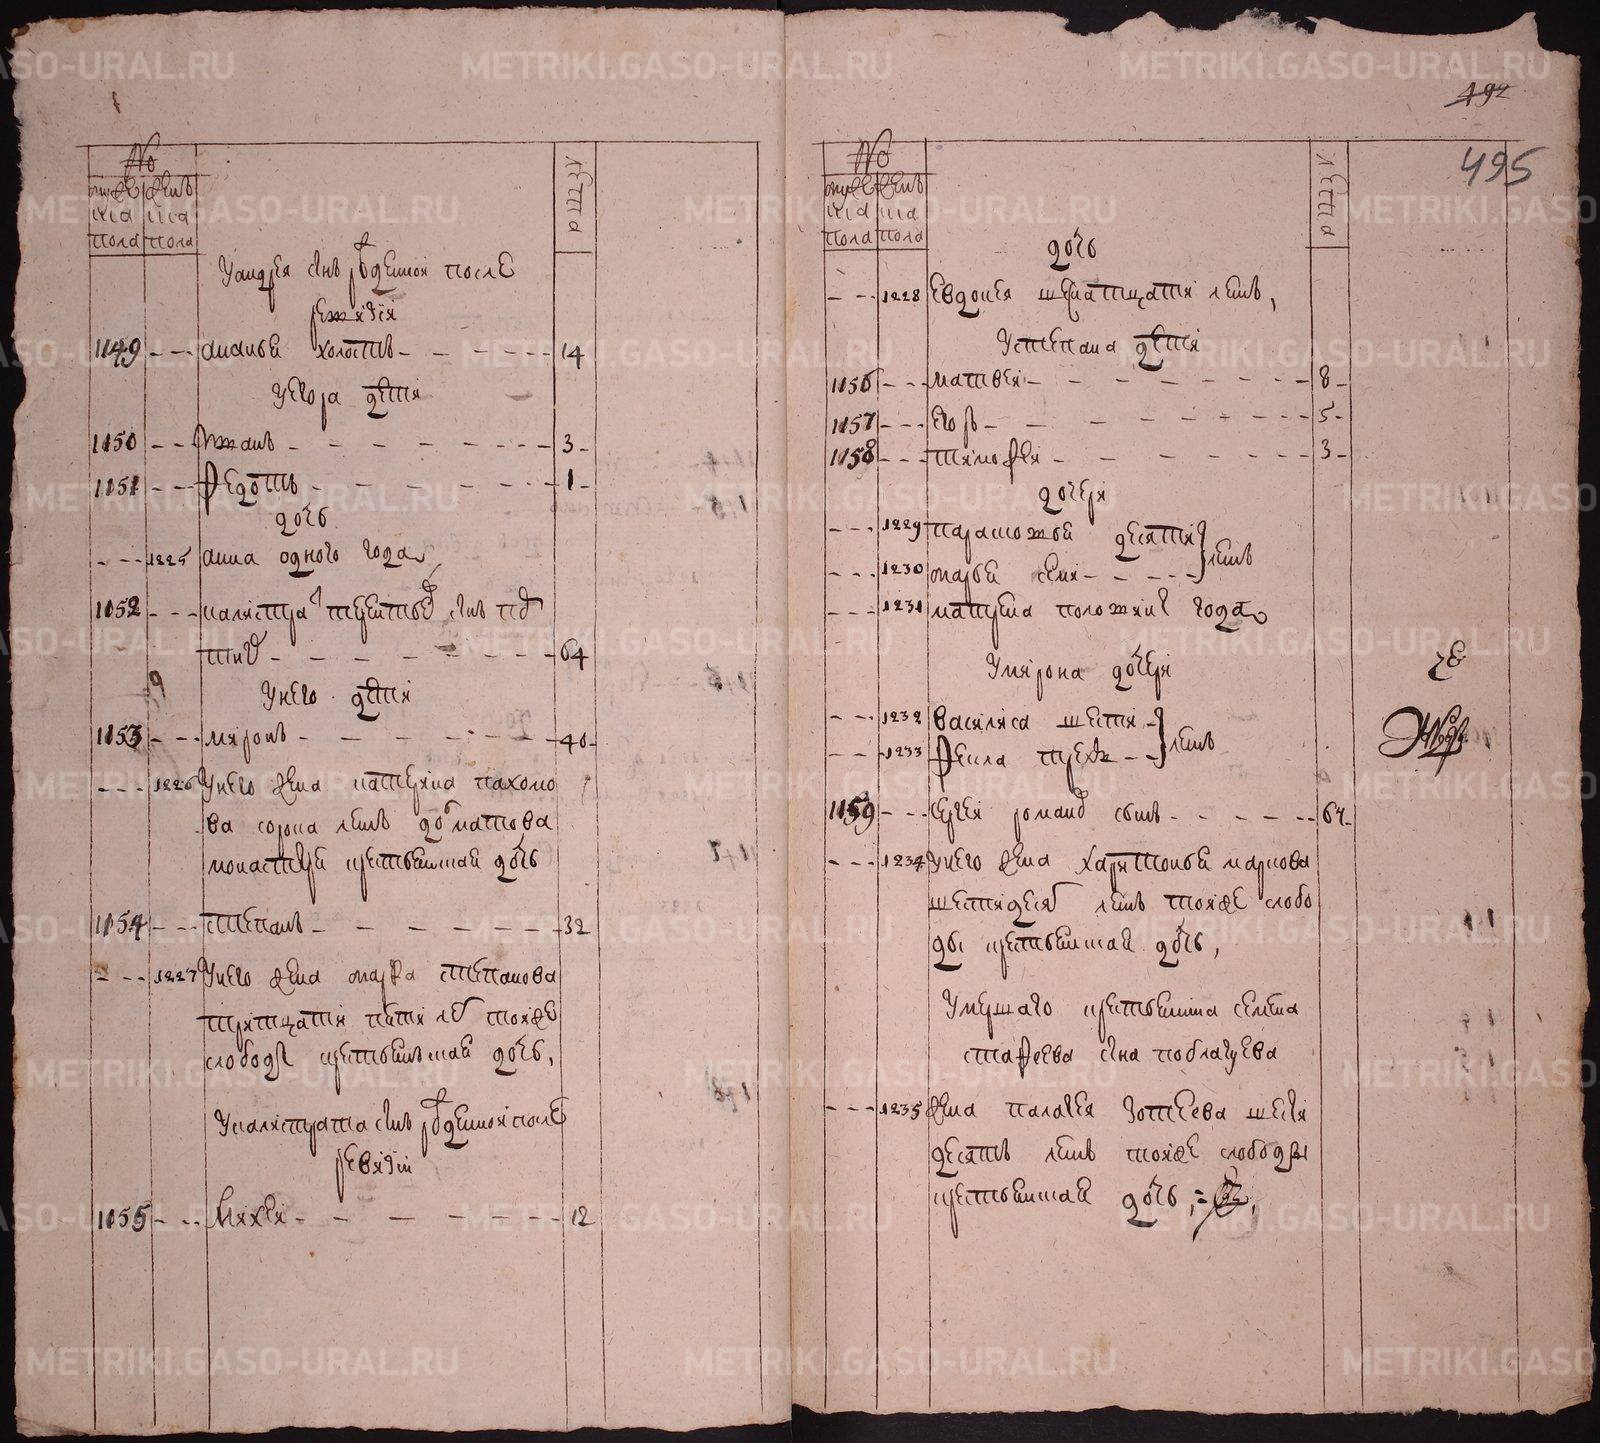 №
мужеска пола
женска пола
лѣта
Уандрея сынъ рожденной после
ревизiи
1149 - - - ананьи холостъ - - - - - - 14
Уегора дети
1150 - - - Иванъ - - - - - - - 3 -
1151 - - - Федотъ - - - - - - - 1 -
дочь
- - - 1225 анна одного года
1152 - - - калистратъ
64
Унего дети
1153 - - - миронъ - - - - - - - 40 -
- - - 1226 Унего жена катерина пахомо
ва сорока летъ долматова
монастыря крестьянская дочь
1154 - - - степанъ - - - - - - - 32
- - - 1227 Унего жена марфа степанова
тритцати пяти летъ тояже
слободы крестьянская дочь,
Укалистрата сынъ рожденной после
ревизiи
1155 - - - Михей - - - - - - 12
492
495
№
мужеска пола
женска пола
лѣта
дочь
- - - 1228 Евдокея шеснатцати летъ,
Устепана дети
1156 - - - матвей - - - - - - - 8 -
1157 - - - егоръ - - - - - - - 5 -
1158 - - - тимофей - - - - - - 3 -
дочери
- - - 1229 парасковья десяти
летъ
- - - 1230 марья семи - - - - -
- - - 1231 катерина половины года
Умирона дочери
- - - 1232 василиса шести -
летъ
- - - 1233 Фекла трехъ - -
1159 - - - сергей романовъ сынъ - - - - - 64 -
- - - 1234 Унего жена харитонья маркова
шестидесят летъ тояже слобо
ды крестьянская дочь,
Умершаго крестьянина семена
старфеева сына поблагуева
- - - 1235 жена палагея зотеева шести
десятъ летъ тояже слободы
крестьянская дочь,